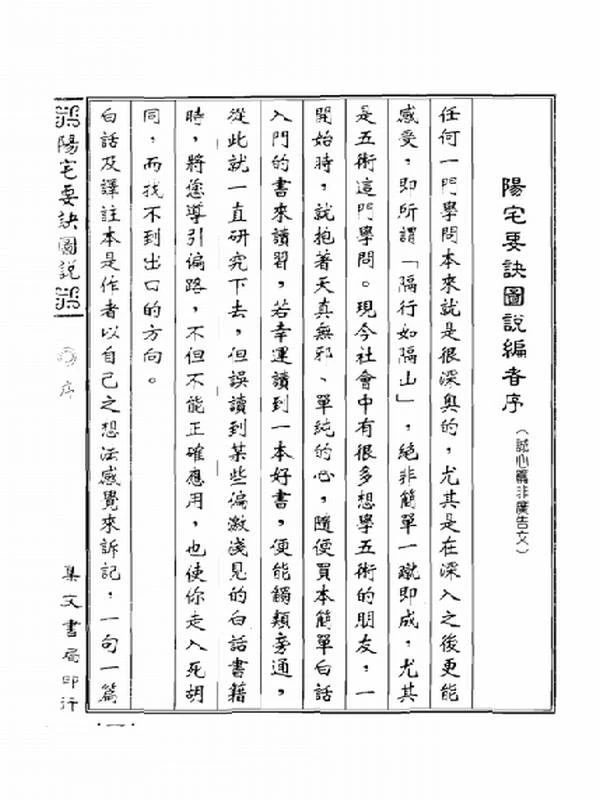 陽宅要訣圖說編者序(誠心篇非廣告文)
任何一門學問本來就是很深奧的，尤其是在深入之後更能
感受，即所謂「隔行如隔山」，絕非簡單一蹴即成，尤其
是五術這門學問。現今社會中有很多想學五術的朋友，一
開始時，就抱著天真無邪、單純的心，隨便買本簡單白話
入門的書來讀習，若幸運讀到一本好書，便能觸類旁通，
從此就一直研究下去，但誤讀到某些偏激淺見的白話書籍
時，將您導引偏路，不但不能正確應用，也使你走入死胡
同，而找不到出口的方向。
白話及譯註本是作者以自己之想法感覺來訴記，一句一篇
陽宅要訣圖說
序
集文書局印行
·一·